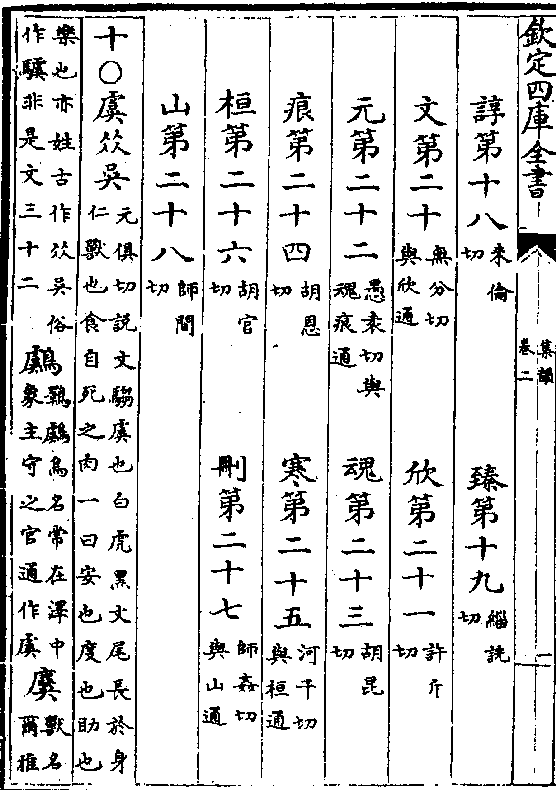 欽定四庫全書
集韻
卷二
一
諄第十八 朱倫切
臻第十九 緇詵切
文第二十 無分切與欣通
欣第二十一 許斤切
元第二十二 愚袁切與魂痕通
魂第二十三 胡昆切
痕第二十四 胡恩切
寒第二十五 河干切與桓通
桓第二十六 胡官切
刪第二十七 師姦切與山通
山第二十八 師間切
十〇虞𠆱吴 元俱切説文騶虞也白虎黑文尾長於身仁獸也食自死之肉一曰安也度也助也
樂也亦姓古作𠆱吴俗作驥非是文三十二 鸆 鷄鸆鳥名常在澤中虞象主守之官通作虞 麌 獸名爾雅